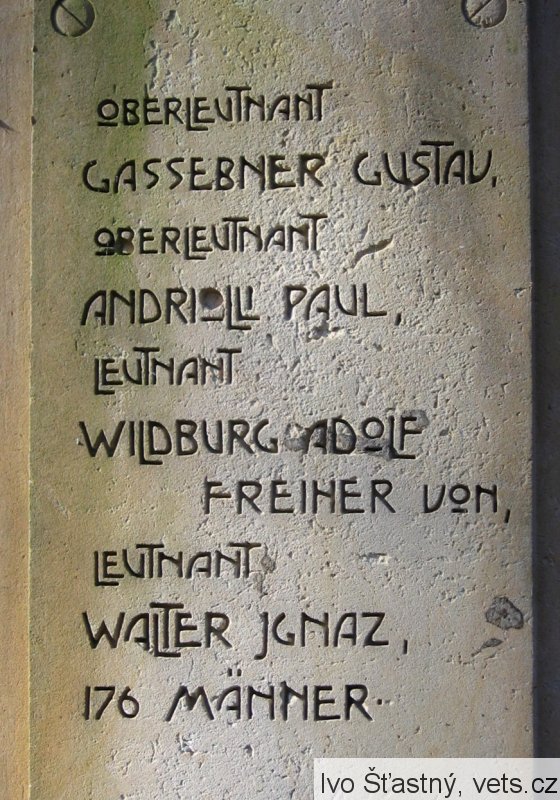 OBERLEUTNANT
GASSEBNER GUSTAV,
OBERLEUTNANT
ANDRIOLLI PAUL,
LEUTNANT
WILDBURG ADOLF
FREIHER VON,
LEUTNANT
WALTER JGNAZ,
176 MÄNNER.
Ivo Šťastný, vets.cz